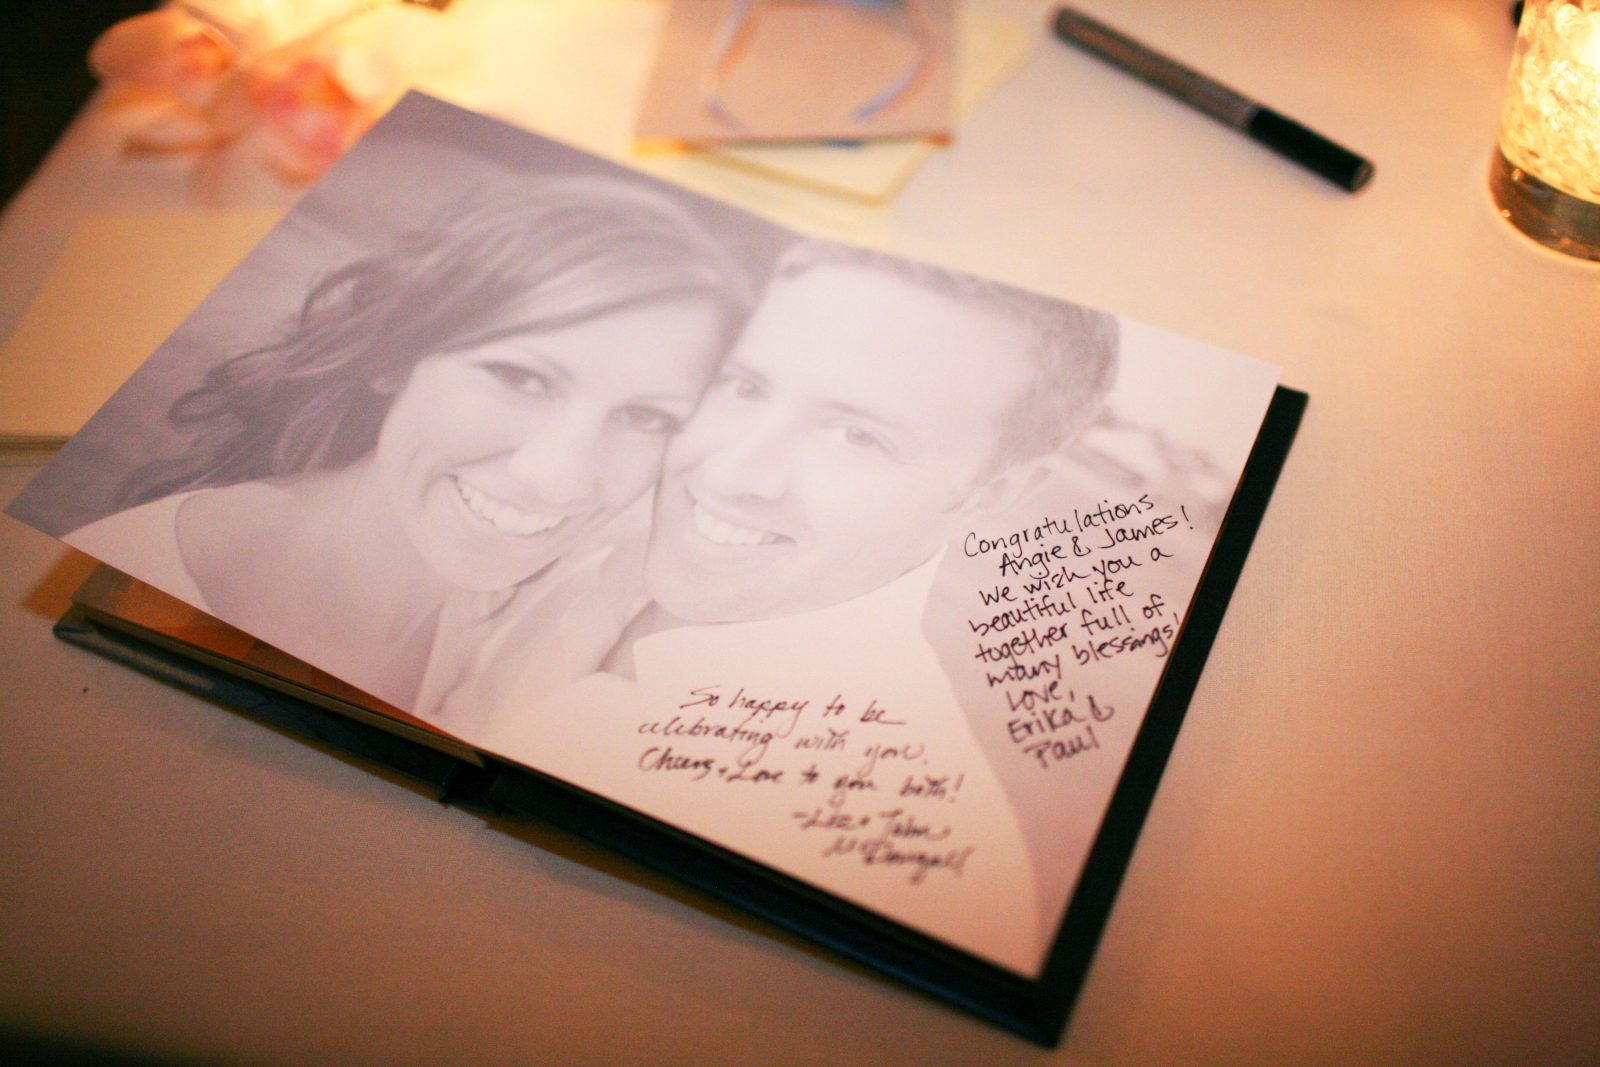 Congratulations
Angie & James!
We wish you a
beautiful life
together full of
many blessings!
Love,
Erika &
Paul
So happy to be
celebrating with you.
Cheers + Love to you both!
- Liz + John
McDougall